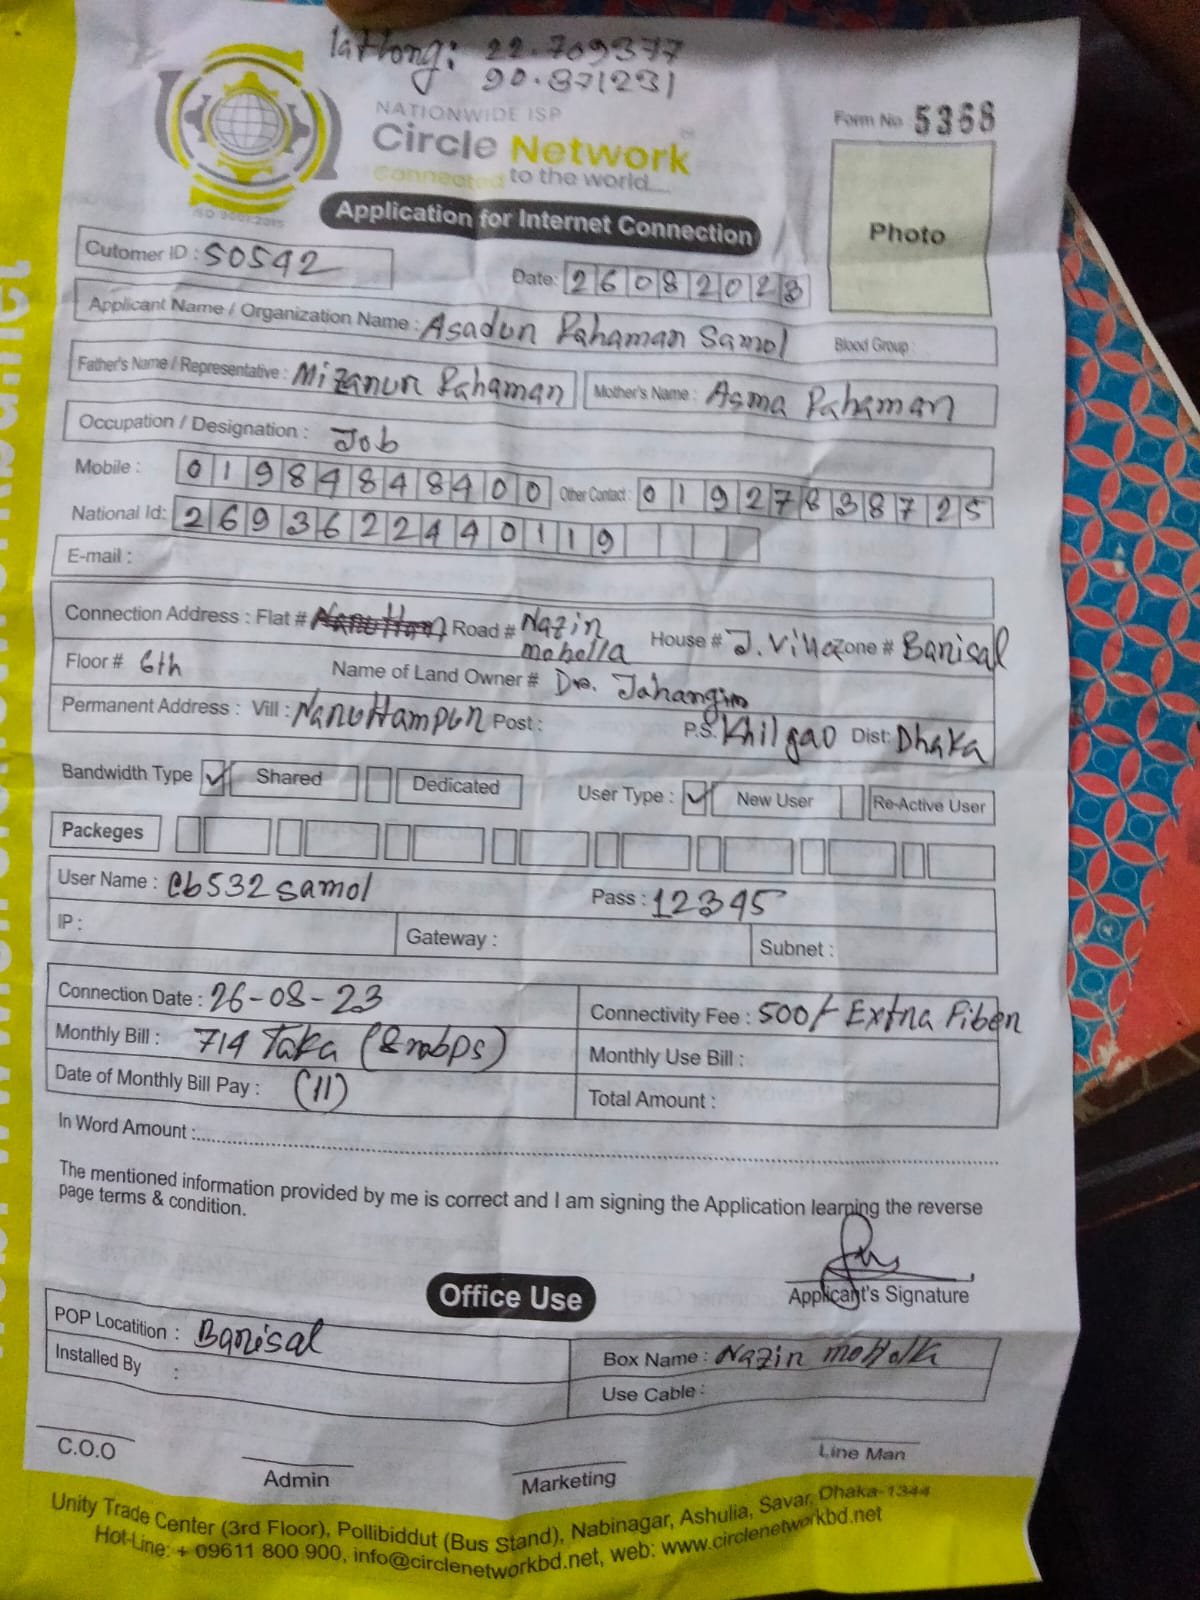 latlong: 22.709377
90.871231
NATIONWIDE ISP
Circle Network
Connected to the world....
ISO 9001:2015
Form No 5368
Application for Internet Connection
Photo
Cutomer ID : 50542
Date: 26082023
Applicant Name / Organization Name : Asadun Rahaman Samol
Blood Group :
Father's Name / Representative : Mizanur Rahaman
Mother's Name : Asma Rahaman
Occupation / Designation : Job
Mobile : 01984848400 Other Contact : 01927838725
National Id: 2693622440119
E-mail :
Connection Address : Flat # Road # Nazir mohella House # J. Villa Zone # Barisal
Floor # 6th Name of Land Owner # Dr. Jahangir
Permanent Address : Vill : Post : P.S. Khilgao Dist: Dhaka
Bandwidth Type Shared Dedicated User Type : New User Re-Active User
Packeges
User Name : cb532samol Pass : 12345
IP : Gateway : Subnet :
Connection Date : 26-08-23 Connectivity Fee : 500/- Extra Fiber
Monthly Bill : 714 Taka (8mbps) Monthly Use Bill :
Date of Monthly Bill Pay : (11) Total Amount :
In Word Amount :
The mentioned information provided by me is correct and I am signing the Application learning the reverse
page terms & condition.
Applicant's Signature
Office Use
POP Locatition : Barisal Box Name : Nazir
Installed By : Use Cable :
C.O.O Admin Marketing Line Man
Unity Trade Center (3rd Floor), Pollibiddut (Bus Stand), Nabinagar, Ashulia, Savar, Dhaka-1344
Hot-Line: + 09611 800 900, info@circlenetworkbd.net, web: www.circlenetworkbd.net